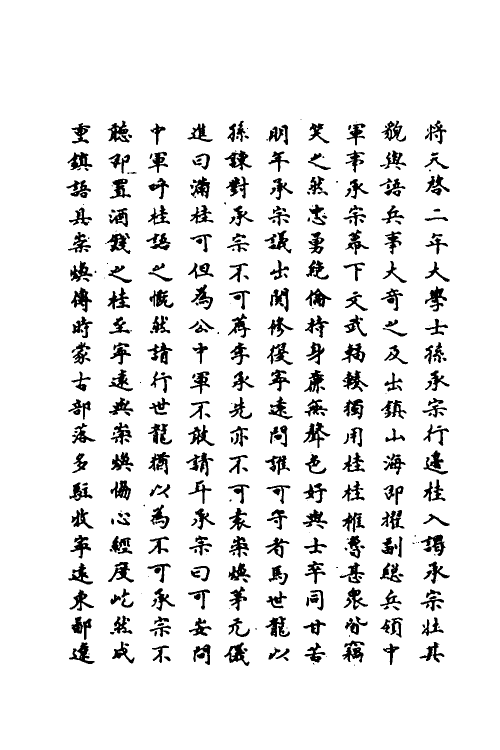 將天啓二年大學士孫承宗行邊桂入謁承宗壯其
貌與語兵事大奇之及出鎮山海即擢副總兵領中
軍事承宗幕下文武輻輳獨用桂桂椎魯甚衆皆竊
笑之然忠勇絶倫持身廉無聲色好與士卒同甘苦
明年承宗議出關修復寧遠問誰可守者馬世龍以
孫諫對承宗不可薦李承先亦不可袁崇煥茅元儀
進曰滿桂可但為公中軍不敢請耳承宗曰可安問
中軍呼桂語之慨然請行世龍猶以為不可承宗不
聽即置酒餞之桂至寧遠與崇煥協心經度屹然成
重鎮語具崇煥傳時蒙古部落多駐牧寧遠東鄙遼